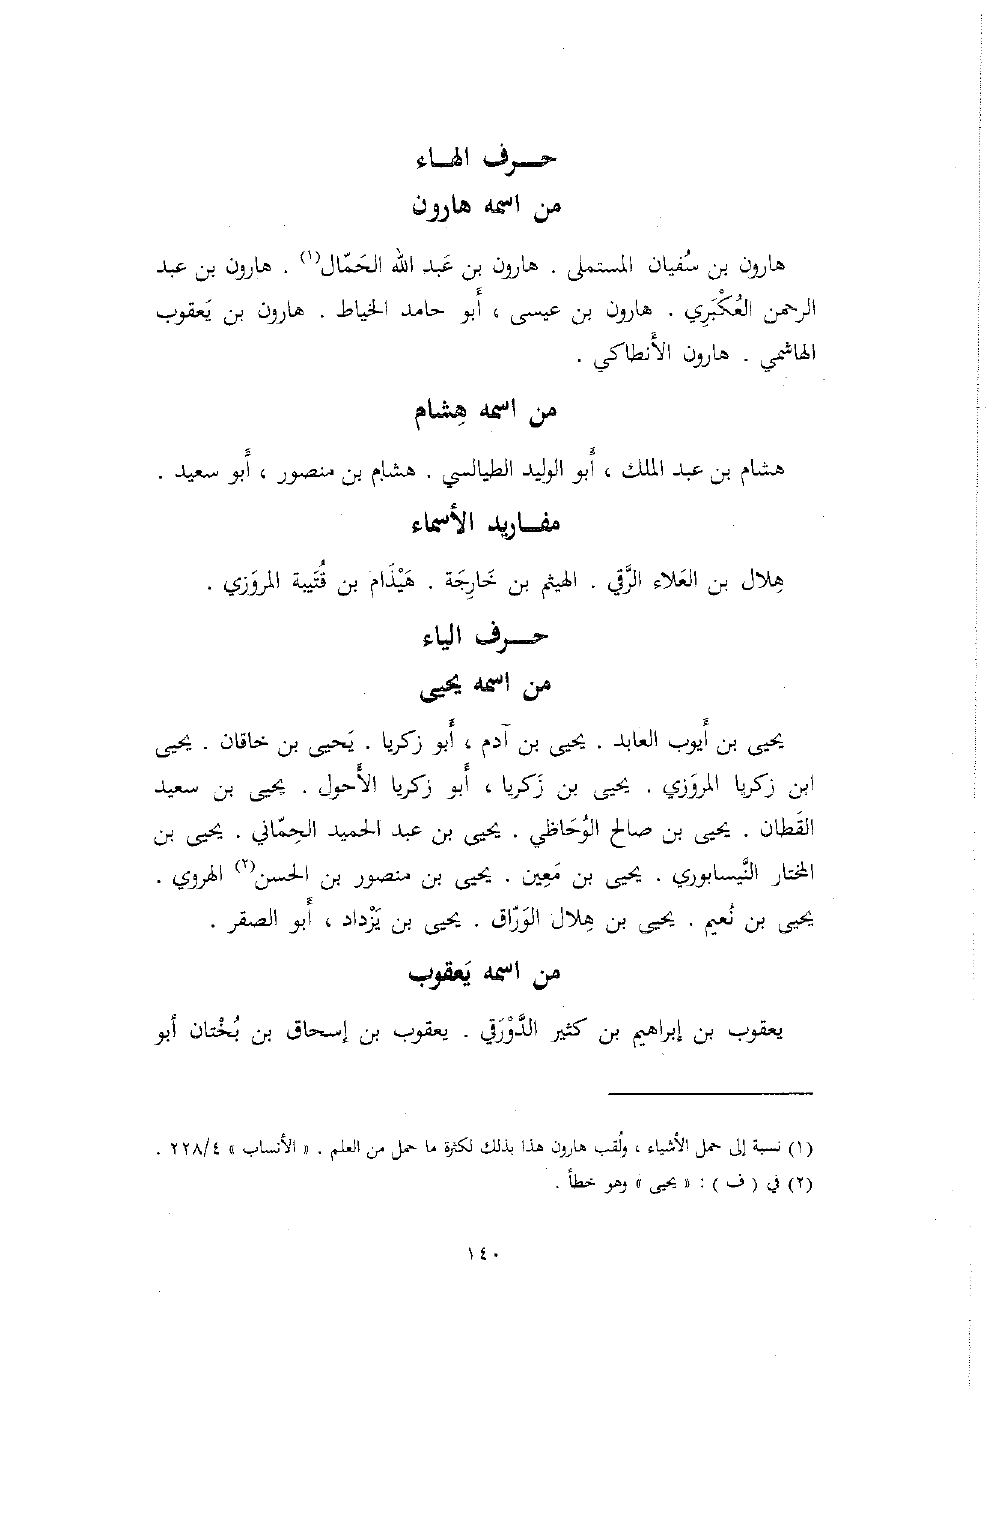 حـــرف الهــاء
من اسمه هارون
هارون بن سُفيان المستملى . هارون بن عَبد الله الحَمّال(١) . هارون بن عبد
الرحمن العُكْبَرِي . هارون بن عيسى ، أَبو حامد الخياط . هارون بن يَعقوب
الهاشمي . هارون الأَنطاكي .
من اسمه هِشام
هشام بن عبد الملك ، أَبو الوليد الطيالسي . هشام بن منصور ، أَبو سعيد .
مفــاريد الأسماء
هِلال بن العَلاء الرَّقي . الهيثم بن خَارِجَة . هَيْذَام بن قُتَيبة المروَزي .
حـــرف الياء
من اسمه يحيى
يحيى بن أَيوب العابد . يحيى بن آدم ، أَبو زكريا . يَحيى بن خاقان . يحيى
ابن زكريا المروَزي . يحيى بن زَكريا ، أَبو زكريا الأَحول . يحيى بن سعيد
القَطان . يحيى بن صالح الوُحَاظي . يحيى بن عبد الحميد الحِمّاني . يحيى بن
المختار النَّيسابوري . يحيى بن مَعِين . يحيى بن منصور بن الحسن(٢) الهروي .
يحيى بن نُعيم . يحيى بن هِلال الوَرّاق . يحيى بن يَزْداد ، أَبو الصقر .
من اسمه يَعقوب
يعقوب بن إبراهيم بن كثير الدَّوْرَقي . يعقوب بن إسحاق بن بُخْتان أَبو
(١) نسبة إلى حمل الأشياء ، ولُقب هارون هذا بذلك لكثرة ما حمل من العلم . « الأنساب » ٢٢٨/٤ .
(٢) في ( ف ) : « يحيى » وهو خطأ .
١٤٠